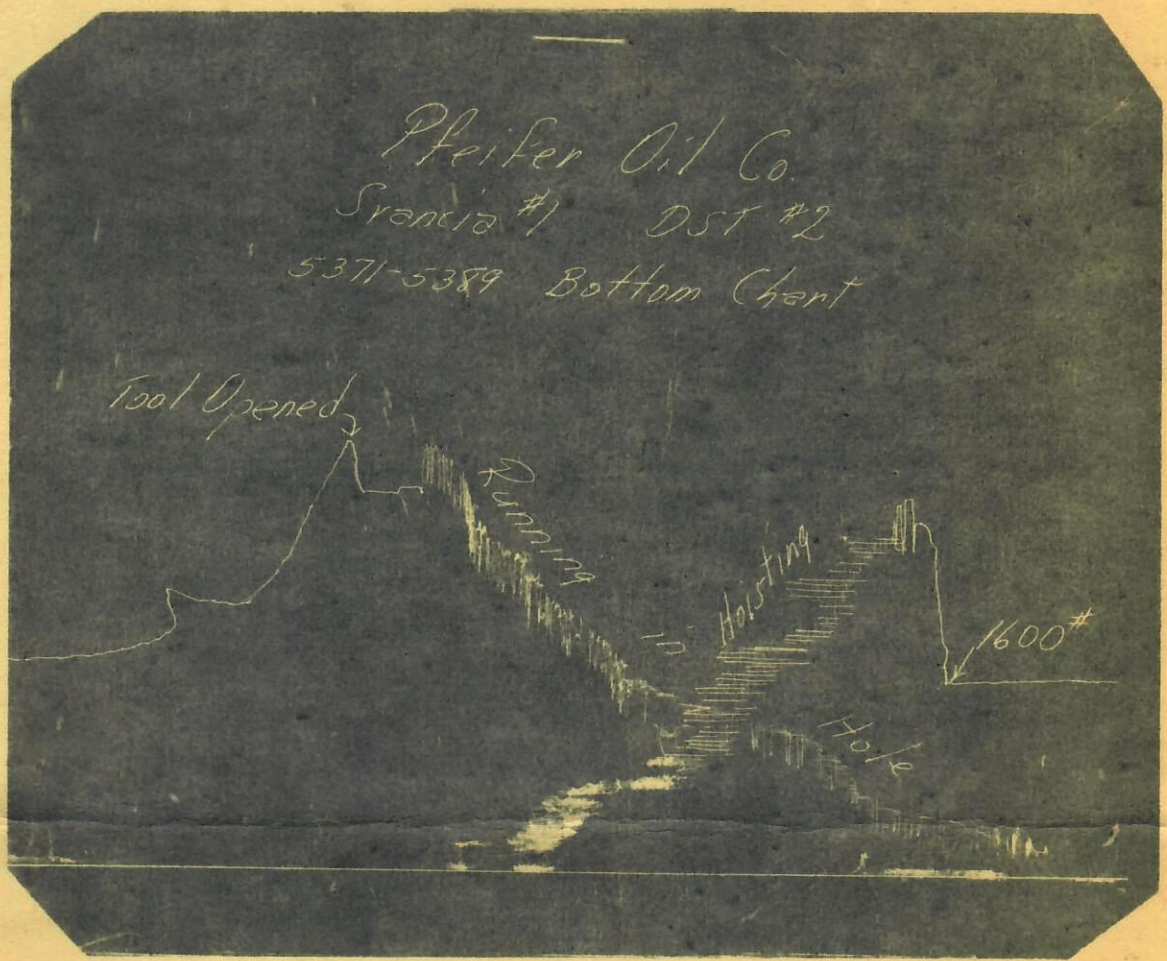 Pfeifer Oil Co.
Svancia #1 DST #2
5371-5389 Bottom Chart
Tool Opened
Running
in
Hoisting
1600#
Hole